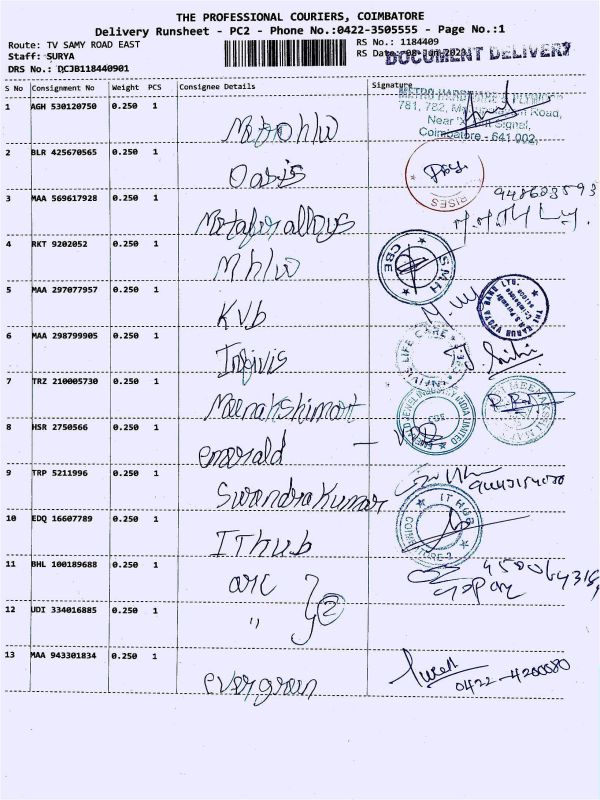 THE PROFESSIONAL COURIERS, COIMBATORE
Delivery Runsheet - PC2 - Phone No.:0422-3505555 - Page No.:1
Route: TV SAMY ROAD EAST
RS No.: 1184409
Staff: SURYA
RS Date: 08-Jun-2023
DOCUMENT DELIVERY
DRS No.: DCJB118440901
S No Consignment No Weight PCS Consignee Details Signature
1 AGH 530120750 0.250 1
781, 782, Road,
Near Signal,
Coimbatore - 641 002,
2 BLR 425670565 0.250 1 Oasis
RISES
3 MAA 569617928 0.250 1 Metafor alloys
4 RKT 9202052 0.250 1 Mhlw
SMH CBE
5 MAA 297077957 0.250 1 KVb
THE KARUR VYSYA BANK LTD.
6 MAA 298799905 0.250 1 Infivis
INFIVIS LIFE CARE
7 TRZ 210005730 0.250 1 Meenakshimart
JEWEL INDUSTRY INDIA LIMITED
CBE
8 HSR 2750566 0.250 1 emerald
9 TRP 5211996 0.250 1 Surendra Kumar
10 EDQ 16607789 0.250 1 IThub
IT HUB
11 BHL 100189688 0.250 1 arc
2
12 UDI 334016885 0.250 1 "
13 MAA 943301834 0.250 1 evergreen
0422-4200080